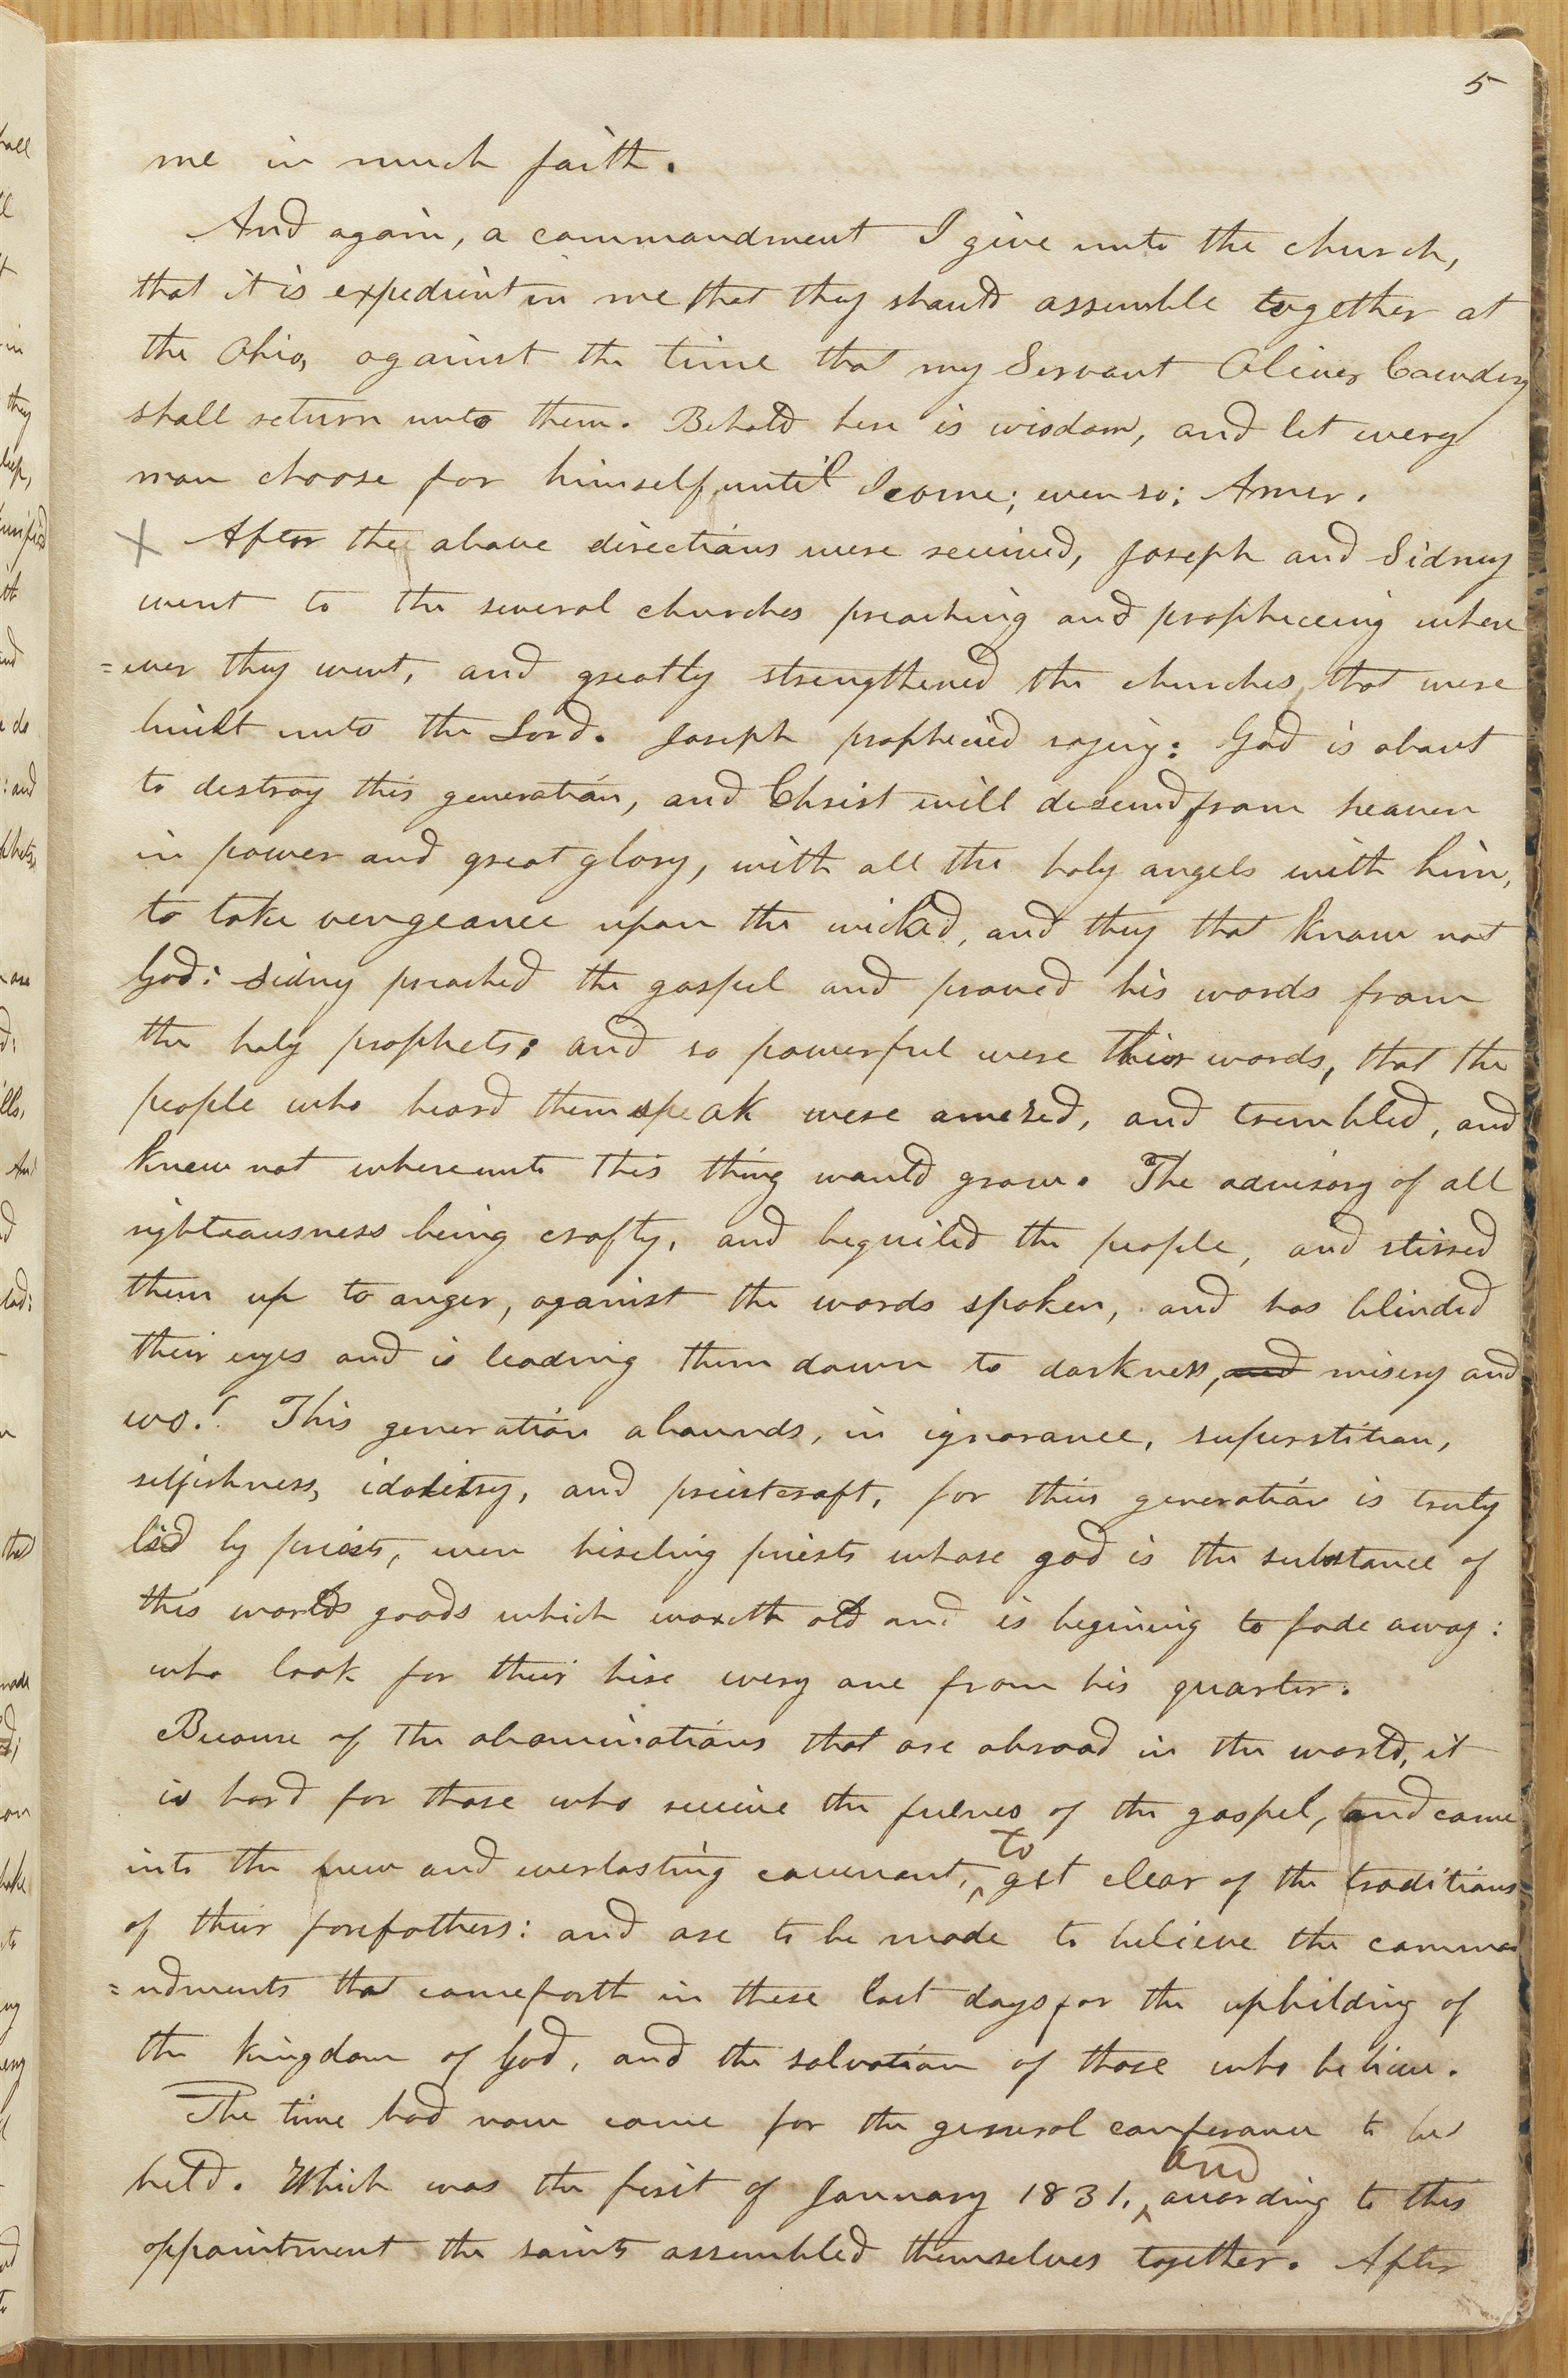 5
me in much faith.
And again, a commandment I give unto the church,
that it is expedient in me that they should assemble together at
the Ohio, against the time that my Servant Oliver Cowdery
shall return unto them. Behold here is wisdom, and let every
man choose for himself until I come; even so; Amen.
X After the above directions were received, Joseph and Sidney
went to the several churches preaching and prophecying where
=ever they went, and greatly strengthened the churches that were
built unto the Lord. Joseph prophecied saying: God is about
to destroy this generation, and Christ will descend from heaven
in power and great glory, with all the holy angels with him,
to take vengeance upon the wicked, and they that know not
God: Sidney preached the gospel and proved his words from
the holy prophets: and so powerful were their words, that the
people who heard them speak were amezed, and trembled, and
knew not whereunto this thing would grow. The advisary of all
righteousness being crafty, and beguiled the people, and stirred
them up to anger, against the words spoken, and has blinded
their eyes and is leading them down to darkness, and misery and
wo.! This generation abounds, in ignorance, superstition,
selfishness, idolitry, and priestcraft, for this generation is truly
led by priests, even hireling priests whose god is the substance of
this worlds goods which waxeth old and is begining to fade away:
who look for their hire every one from his quarter.
Because of the abominations that are abroad in the world, it
is hard for those who receive the fulness of the gospel, and come
into the new and everlasting covenant, to get clear of the traditions
of their forefathers: and are to be made to believe the comma
=ndments that come forth in these last days for the upbilding of
the kingdom of God, and the salvation of those who believe.
The time had now come for the general conferance to be
held. Which was the first of January 1831, and according to this
appointment the saints assembled themselves together. After